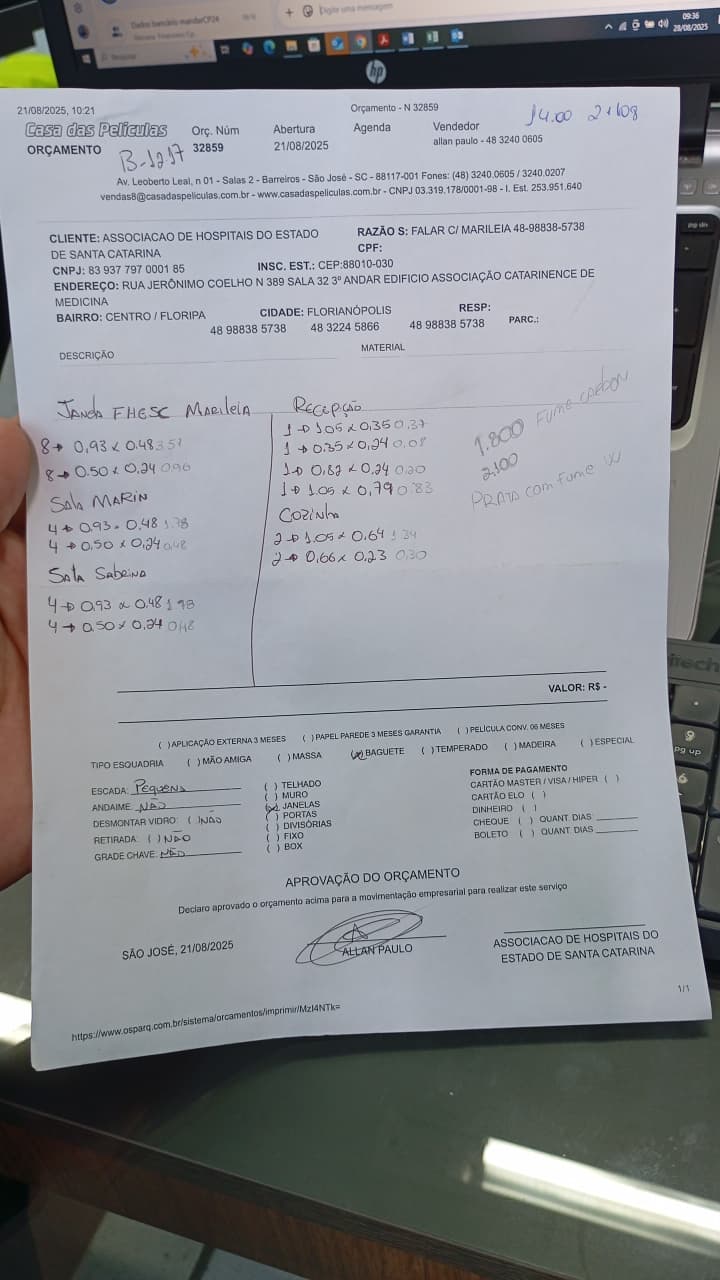 Digite uma mensagem
09:36
28/08/2025
hp
21/08/2025, 10:21
Orçamento - N 32859
14.00 21/08
Casa das Películas
ORÇAMENTO
B-1217
Orç. Núm
32859
Abertura
21/08/2025
Agenda
Vendedor
allan paulo - 48 3240 0605
Av. Leoberto Leal, n 01 - Salas 2 - Barreiros - São José - SC - 88117-001 Fones: (48) 3240.0605 / 3240.0207
vendas8@casadaspeliculas.com.br - www.casadaspeliculas.com.br - CNPJ 03.319.178/0001-98 - I. Est. 253.951.640
CLIENTE: ASSOCIACAO DE HOSPITAIS DO ESTADO
DE SANTA CATARINA
RAZÃO S: FALAR C/ MARILEIA 48-98838-5738
CPF:
CNPJ: 83 937 797 0001 85
INSC. EST.: CEP:88010-030
ENDEREÇO: RUA JERÔNIMO COELHO N 389 SALA 32 3º ANDAR EDIFICIO ASSOCIAÇÃO CATARINENCE DE
MEDICINA
BAIRRO: CENTRO / FLORIPA
CIDADE: FLORIANÓPOLIS
RESP:
48 98838 5738 48 3224 5866 48 98838 5738 PARC.:
DESCRIÇÃO
MATERIAL
FHESC Marileia
8→ 0,93 x 0.48 3.57
8→ 0.50 x 0,24 0.96
Sala MARIN
4→ 0.93 x 0,48 1.78
4→ 0.50 x 0,24 0,48
Sala Sabrina
4→ 0.93 x 0.48 1.78
4→ 0.50 x 0,24 0,48
Recepção
1→ 1.05 x 0,35 0.37
1→ 0.35 x 0,24 0.08
1→ 0,82 x 0,24 0.20
1→ 1.05 x 0,79 0.83
Cozinha
2→ 1.05 x 0.64 1.34
2→ 0.66 x 0,23 0,30
1.800 Fume carbon
2.100
PRATA com Fume
VALOR: R$ -
( )APLICAÇÃO EXTERNA 3 MESES ( )PAPEL PAREDE 3 MESES GARANTIA ( )PELÍCULA CONV. 06 MESES
TIPO ESQUADRIA ( )MÃO AMIGA ( )MASSA (x)BAGUETE ( )TEMPERADO ( )MADEIRA ( )ESPECIAL
ESCADA: Pequena
ANDAIME: NÃO
DESMONTAR VIDRO: ( )NÃO
RETIRADA: ( )NÃO
GRADE CHAVE: NÃO
( ) TELHADO
( ) MURO
(x) JANELAS
( ) PORTAS
( ) DIVISÓRIAS
( ) FIXO
( ) BOX
FORMA DE PAGAMENTO
CARTÃO MASTER / VISA / HIPER ( )
CARTÃO ELO ( )
DINHEIRO ( )
CHEQUE ( ) QUANT. DIAS:
BOLETO ( ) QUANT DIAS
APROVAÇÃO DO ORÇAMENTO
Declaro aprovado o orçamento acima para a movimentação empresarial para realizar este serviço
SÃO JOSÉ, 21/08/2025
ALLAN PAULO
ASSOCIACAO DE HOSPITAIS DO
ESTADO DE SANTA CATARINA
1/1
https://www.osparq.com.br/sistema/orcamentos/imprimir/MzI4NTk=
pg dn
9
pg up
6